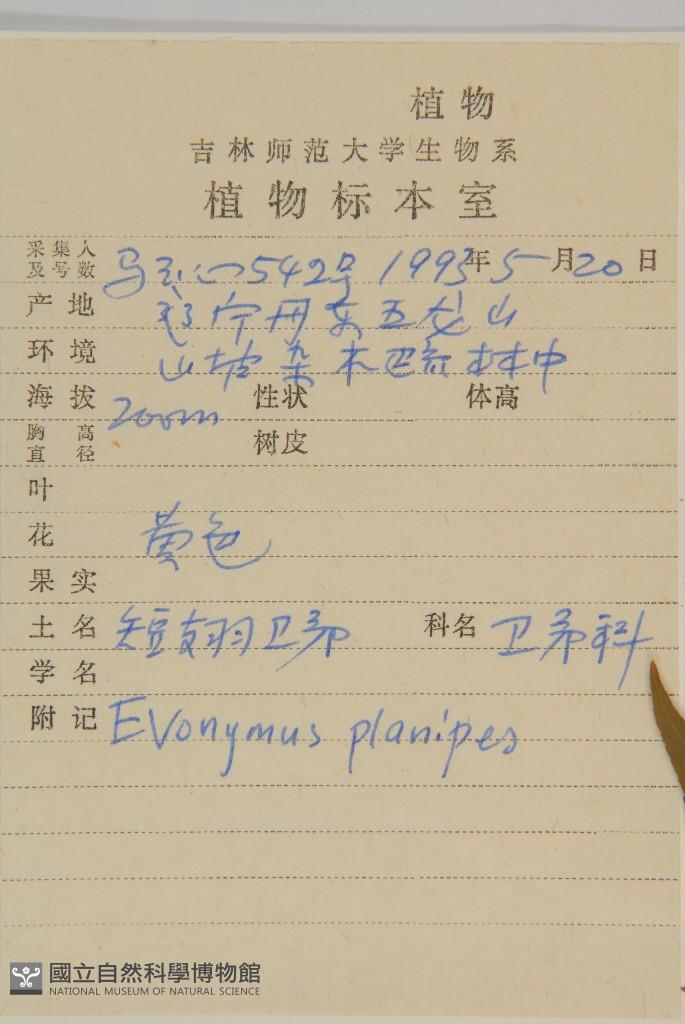 植物
吉林师范大学生物系
植物标本室
采集人及号数 马 542号 1993年5月20日
产地 辽宁丹东五龙山
环境 山坡杂木林中
海拔 200m 性状 体高
胸高直径 树皮
叶
花 黄色
果实
土名 短翅卫矛 科名 卫矛科
学名
附记 Evonymus planipes
國立自然科學博物館
NATIONAL MUSEUM OF NATURAL SCIENCE